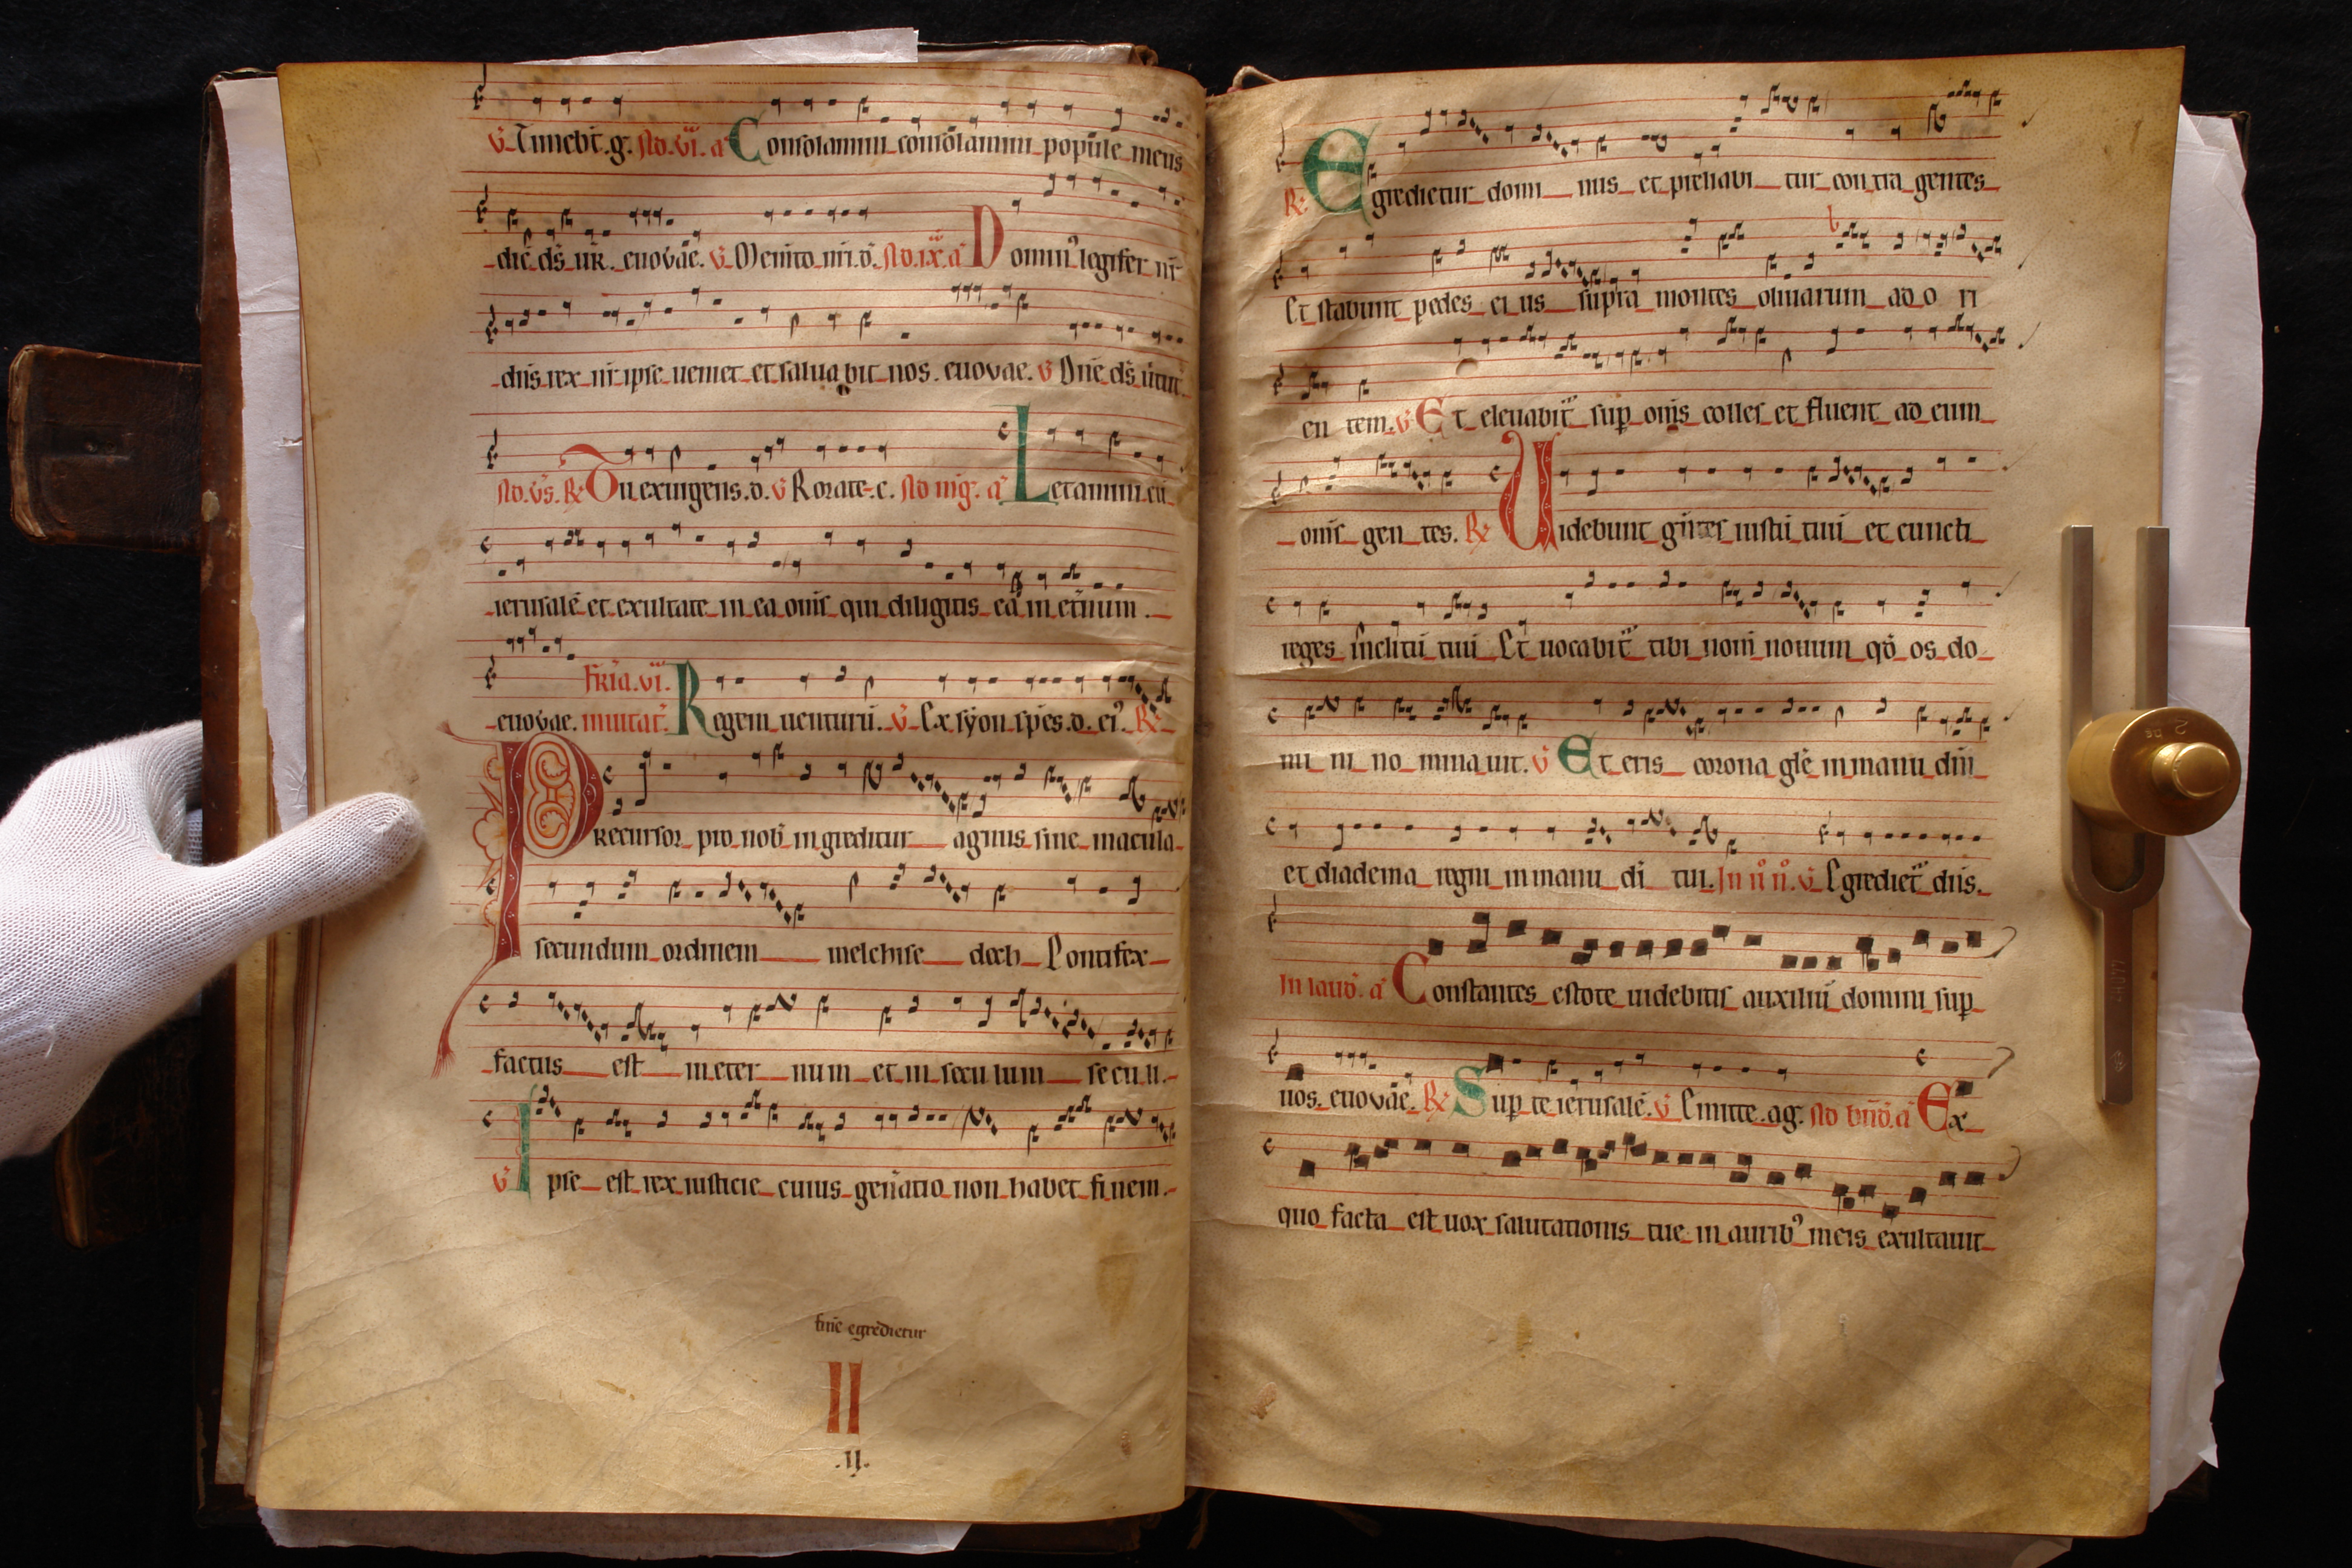 V. Timebt̄. g. Ad. vi. a Consolamini consolamini popule meus
dic̄ ds̄ ur̄. euovae. V. Memito nr̄i. d. Ad. ix. a Domin᾽ legifer nr̄
dn̄s rex nr̄ ipse ueniet et saluabit nos. euovae. V Dn̄e ds̄ ūtut
Ad. vs̄. R Tu exurgens. d. V Rorate. c. Ad mḡ. a Letamini cū
ierusalē et exultate in ea om̄s qui diligitis eā in et̄num.
euovae. inuitat̄. Fr̄ia. vi. Regem uenturū. V. Ex syon sp̄es. d. ei᾽. R
Precursor pro nob̄ in greditur agnus sine macula
secundum ordinem melchise dech Pontifex
factus est in eter num et in secu lum se cu li.
V Ipse est rex iusticie cuius gen̄atio non habet fi nem.
egredietur
II
.ij.
R Egredietur domi nus et preliabi tur con tra gentes
Et stabunt pedes ei us supra montes oliuarum ad o ri
en tem. V Et eleuabit̄ sup om̄s colles et fluent ad eum
om̄s gen tes. R Uidebunt gn̄tes iustū tuū et cuncti
reges inclitū tuū Et uocabit̄ tibi nom̄ nouum qd̄ os do
mi ni no mina uit. V Et eris corona glē in manu dn̄i
et diadema regni in manu dī tui. In ii n. V Egrediet̄ dn̄s.
In laud. a Constantes estote uidebitis auxiliū domini sup
uos. euovae. R Sup te ierusalē. V Emitte. ag. Ad bn̄d. a Ex
quo facta est uox salutationis tue in aurib᾽ meis exultauit